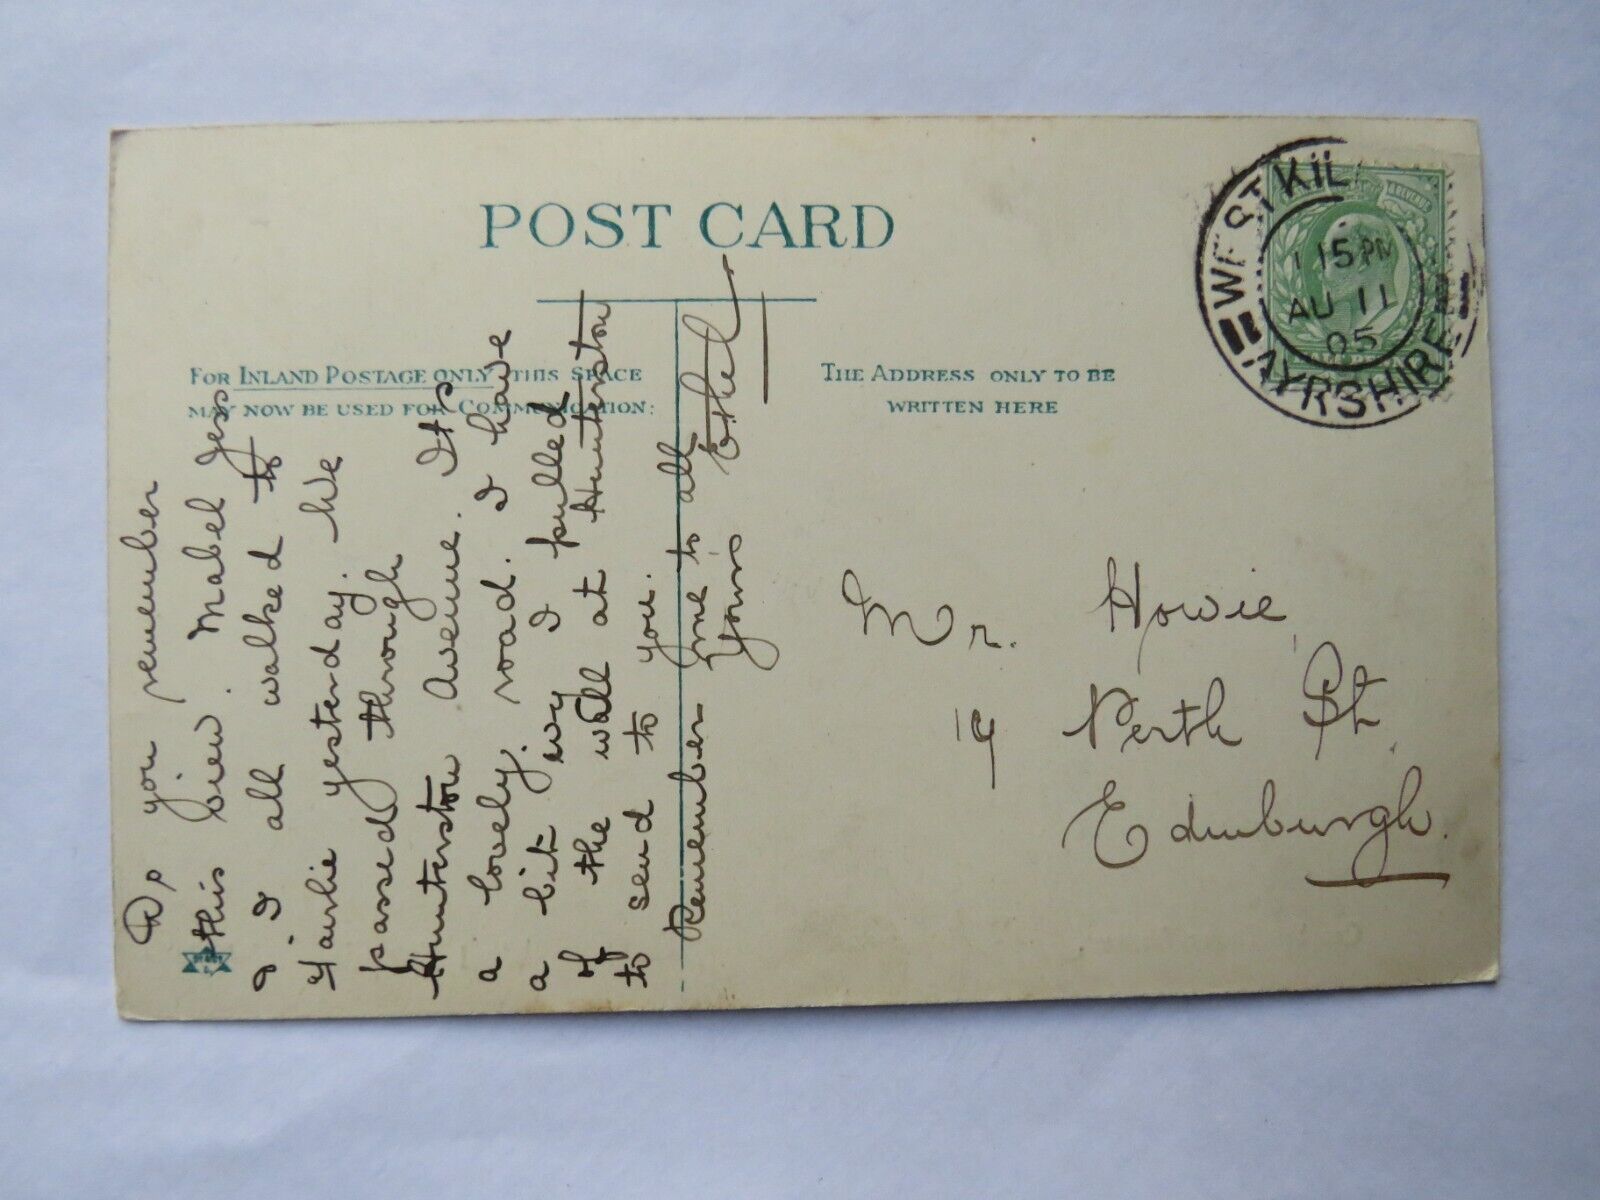 POST CARD
FOR INLAND POSTAGE ONLY THIS SPACE
MAY NOW BE USED FOR COMMUNICATION:
THE ADDRESS ONLY TO BE
WRITTEN HERE
WEST KIL
1 15 PM
AU 11
05
AYRSHIRE
Do you remember
this view. Mabel Jess
& I all walked to
Fairlie yesterday. We
passed through
Hunterston Avenue. It is
a lovely road. I have
a bit ivy I pulled
of the wall at Hunterston
to send to you.
Remember me to all
Yours Ethel
Mr. Howie,
19 Perth St,
Edinburgh.